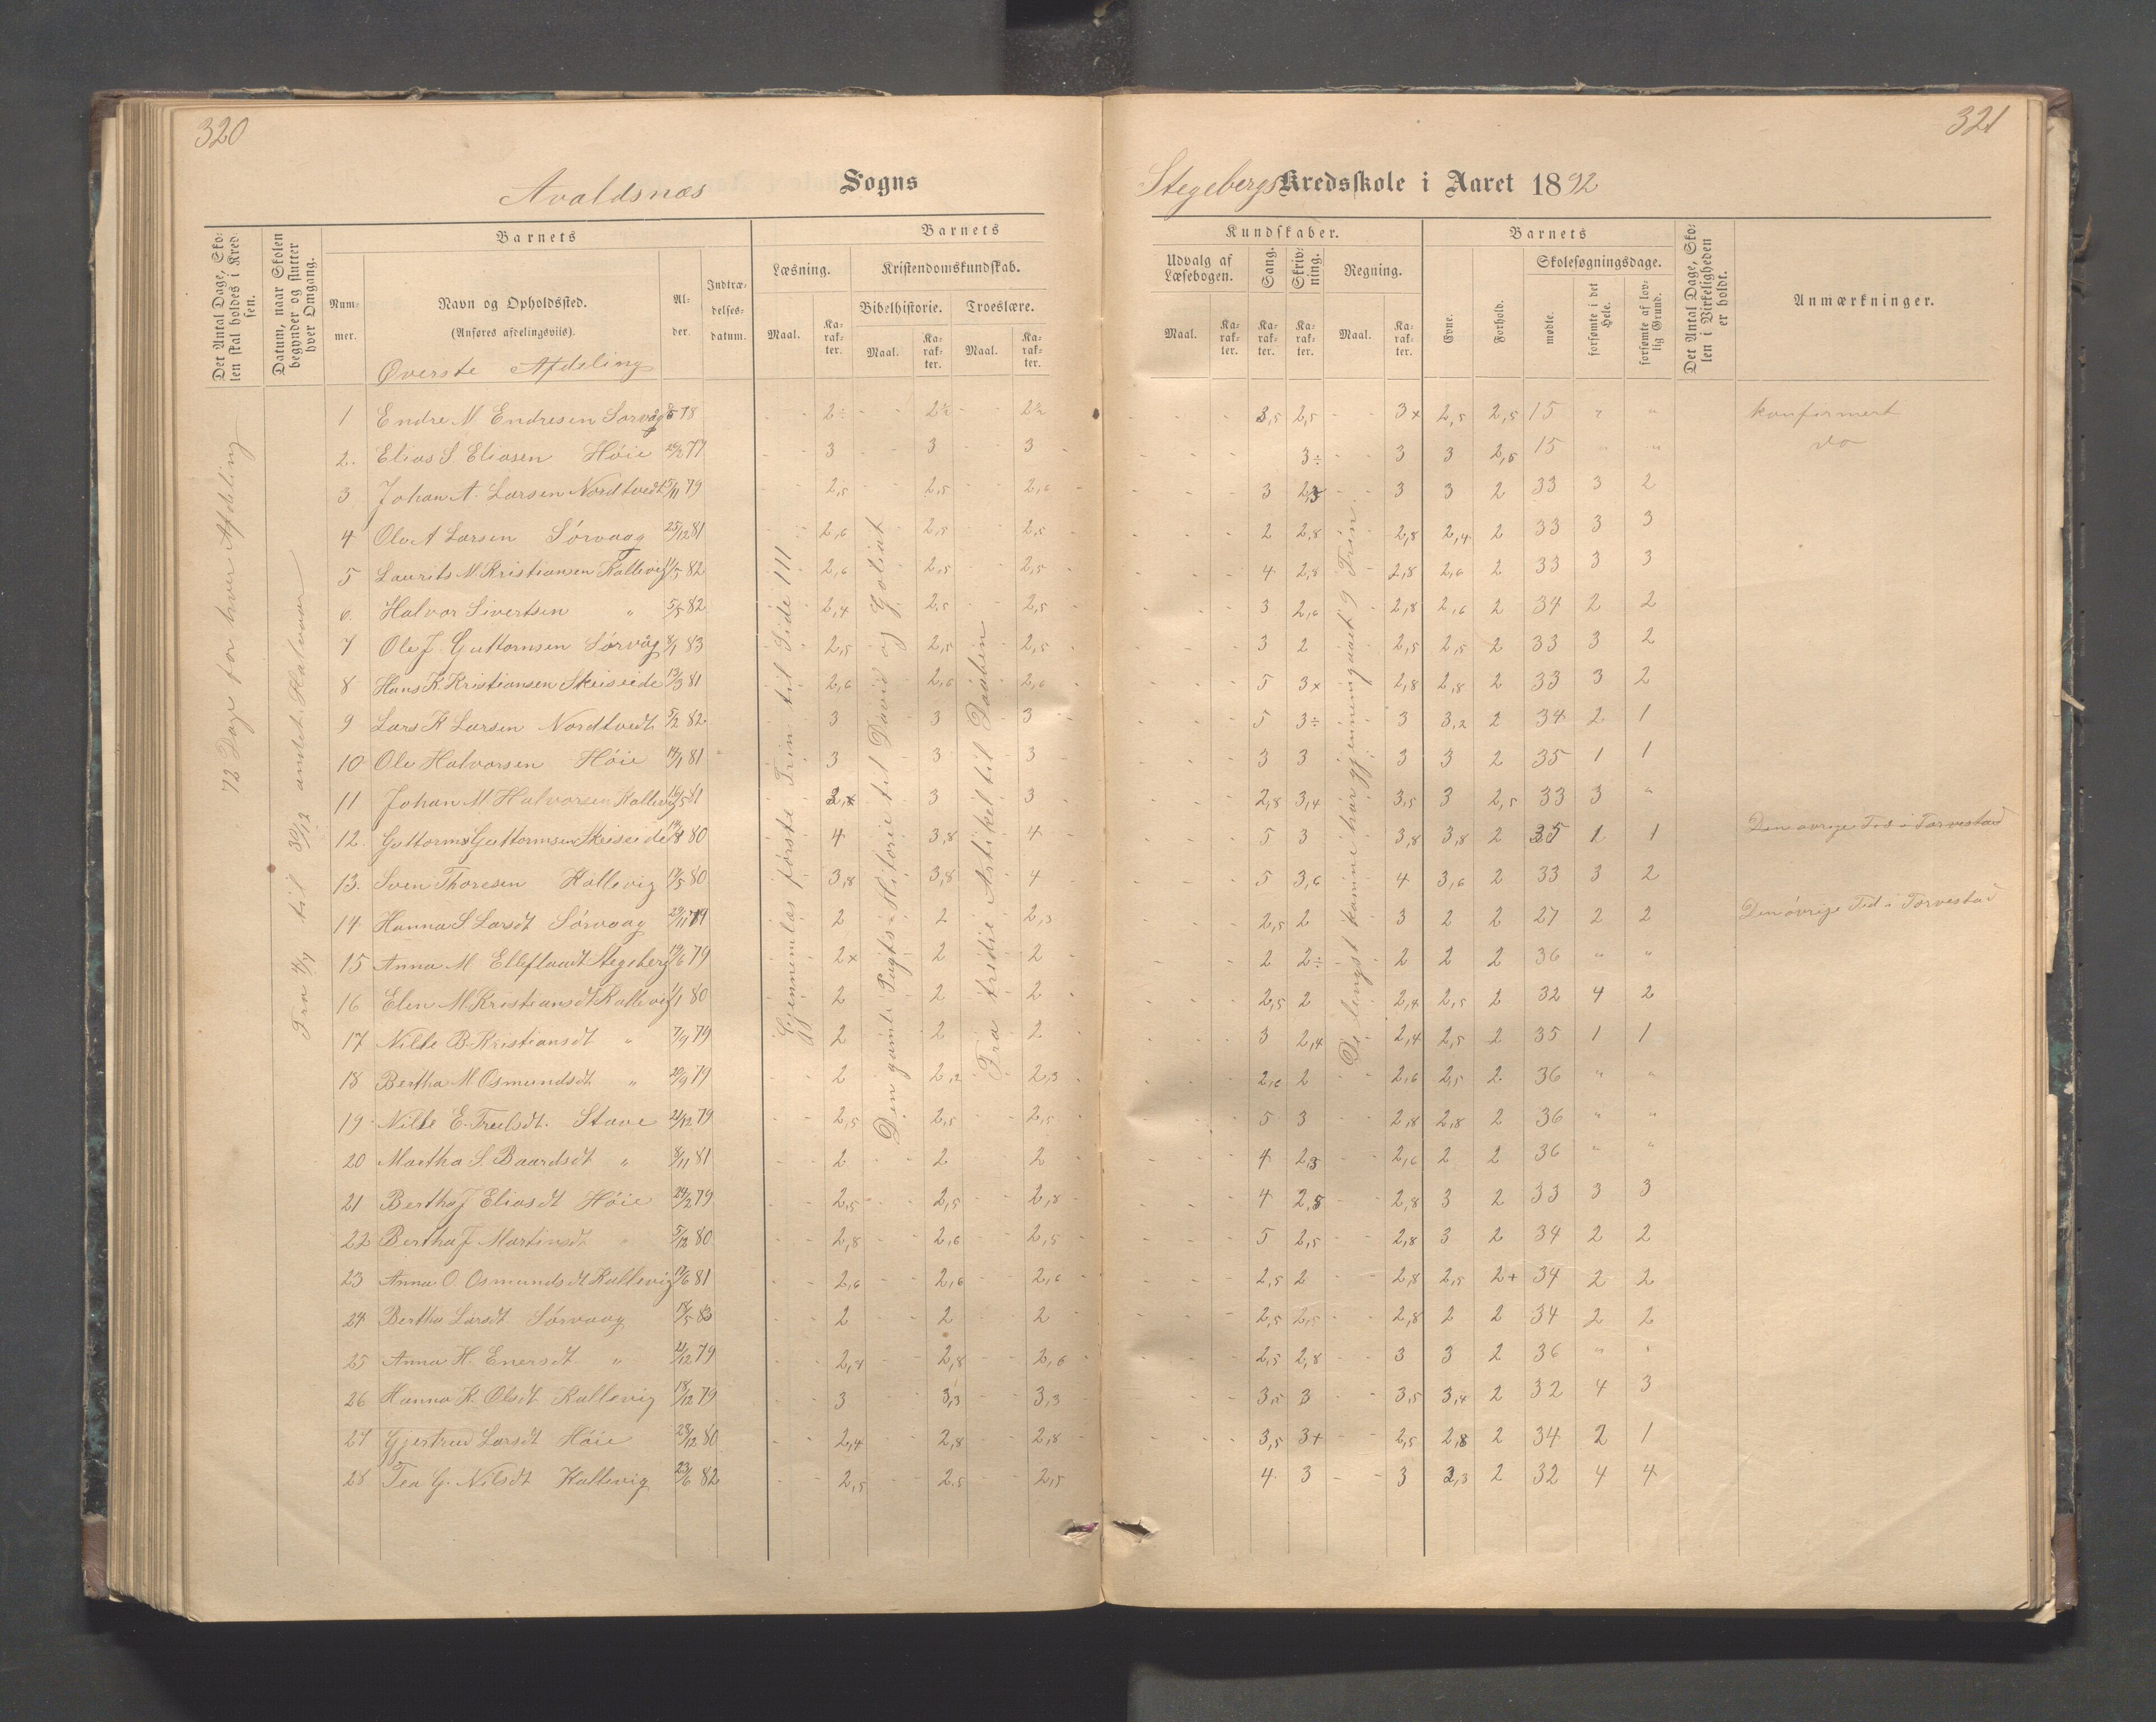 320
Avaldsnæs Sogns
Det Antal Dage, Sko-
len skal holdes i Kred-
sen.
Datum, naar Skolen
begynder og slutter
hver Omgang.
Barnets
Num-
mer.
Navn og Opholdssted.
(Anføres afdelingsviis).
Øverste Afdeling
Al-
der.
Indtræ-
delses-
datum.
Barnets
Læsning.
Maal.
Ka-
rak-
ter.
Kristendomskundskab.
Bibelhistorie.
Maal.
Ka-
rak-
ter.
Troeslære.
Maal.
Ka-
rak-
ter.
72 Dage for hver Afdeling
Fra 4/7 til 30/12 andet Halvaar
Gjennemlæs første Trin til Side 111
Den gamle Pagts Hitorie til David og Goliat
Fra tredie Artikel til Daaben
1 Endre M Endresen Sørvåg 78 2÷ 2½ 2½
2. Elias S Eliasen Høie 77 3 3 3
3 Johan A. Larsen Nordtvedt 5/11 79 2,5 2,5 2,6
4 Ole A Larsen Sørvaag 25/12 81 2,6 2,5 2,5
5 Laurits M Kristiansen Kallevig 82 2,6 2,5 2,5
6. Halvor Sivertsen " 5/5 82 2,4 2,5 2,5
7 Ole J. Guttormsen Sørvåg 8/1 83 2,5 2,5 2,5
8 Hans K. Kristiansen Skeiseide 13/3 81 2,6 2,6 2,6
9 Lars K Larsen Nordtvedt 5/2 82 3 3 3
10 Ole Halvorsen Høie 14/1 81 3 3 3
11 Johan M Halvorsen Kallevig 16/5 81 3 3
12. Guttorm Guttormsen Skeiseide 80 4 3,8 4
13. Sven Thoresen Kallevig 17/5 80 3,8 3,8 4
14. Hanna S Larsdt Sørvaag 29/11 2 2 2,3
15 Anna M Elleflaadt Stegeberg 19/6 79 2x 2 2
16 Elen M Kristiansdt Kallevig 1/1 80 2 2 2
17 Nille B. Kristiansdt " 7/9 79 2 2 2
18 Bertha M Osmundsdt " 20/9 79 2 2,2 2,3
19. Nille E. Truelsdt. Stave 21/12 79 2,5 2,5 2,5
20 Martha S. Baardsdt " 8/11 81 2 2 2
21 Bertha J Eliasdt Høie 24/2 79 2,5 2,5 2,8
22 Bertha J Martinsdt " 5/12 80 2,8 2,6 2,5
23 Anna O. Osmundsdt Kallevig 17/6 81 2,6 2,6 2,6
24 Bertha Larsdt Sørvaag 18/5 83 2 2 2
25 Anna H. Enersdt " 21/12 79 2,8 2,6
26 Hanna K. Olsdt Kallevig 18/12 79 3 3,3 3,3
27 Gjertrud Larsdt Høie 29/12 80 2,4 2,8 2,8
28 Tea G. Nilsdt Kallevig 23/6 82 2,5 2.5 2,5
321
Stegebergs Kredsskole i Aaret 1892
Kundskaber.
Udvalg af
Læsebogen.
Maal.
Ka-
rak-
ter.
Sang.
Ka-
rak-
ter.
Skriv-
ning.
Ka-
rak-
ter.
Regning.
Maal.
Ka-
rak-
ter.
Barnets
Evne.
Forhold.
Skolesøgningsdage.
mødte.
forsømte i det
Hele.
forsømte af lov-
lig Grund.
Det Antal Dage, Sko-
len i Virkeligheden
er holdt.
Anmærkninger.
De lengst komne har gjennemgaaet 9 Trin
3,5 2,5 3x 2,5 2,5 15 " " konfirmert
3÷ 3 3 2,5 15 " " do
3 2,3 3 3 2 33 3 2
2 2,8 2,8 2,4 2 33 3 3
4 2,8 2,8 2,6 2 33 3 3
3 2,6 2,8 2,6 2 34 2 2
3 2 2,5 2,5 2 33 3 2
5 3x 2,8 2,8 2 33 3 2
5 3÷ 3 3,2 2 34 2 1
3 3 3 3 2 35 1 1
2,8 3,4 3,5 3 2,5 33 3 "
5 3 3,8 3,8 2 35 1 1 Den øvrige Tid i Torvestad
5 3,6 4 3,6 2 33 3 2
2,5 2 3 2 2 27 2 2 Den øvrige Tid i Torvestad
2 2÷ 2 2 2 36 " "
2,5 2 2,4 2,5 2 32 4 2
3 2,4 2,4 2,5 2 35 1 1
2,6 2 2,6 2,5 2 36 " "
5 3 2,8 2,8 2 36 " "
4 2,3 2,6 2 2 36 " "
4 2,5 2,8 3 2 33 3 3
5 2,5 2,8 3 2 34 2 2
2,5 2 2,8 2,5 2+ 34 2 2
2,5 2,5 2,8 2 2 34 2 2
2,5 2,8 3 3 2 36 " "
3,5 3 3,5 3,4 2 32 4 3
3,5 3+ 2,5 2,8 2 34 2 1
4 3 3 2,3 2 32 4 4